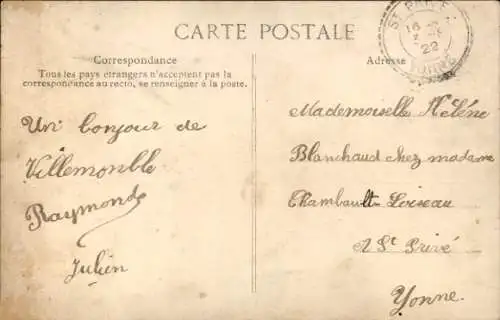 CARTE POSTALE
Correspondance
Tous les pays étrangers n'acceptent pas la
correspondance au recto, se renseigner à la poste.
Un bonjour de
Villemonble
Raymond
Julien
Adresse
ST PRIVÉ
22
YONNE
Mademoiselle Hélène
Blanchaud chez madame
Chambault-Loiseau
A St Privé
Yonne.